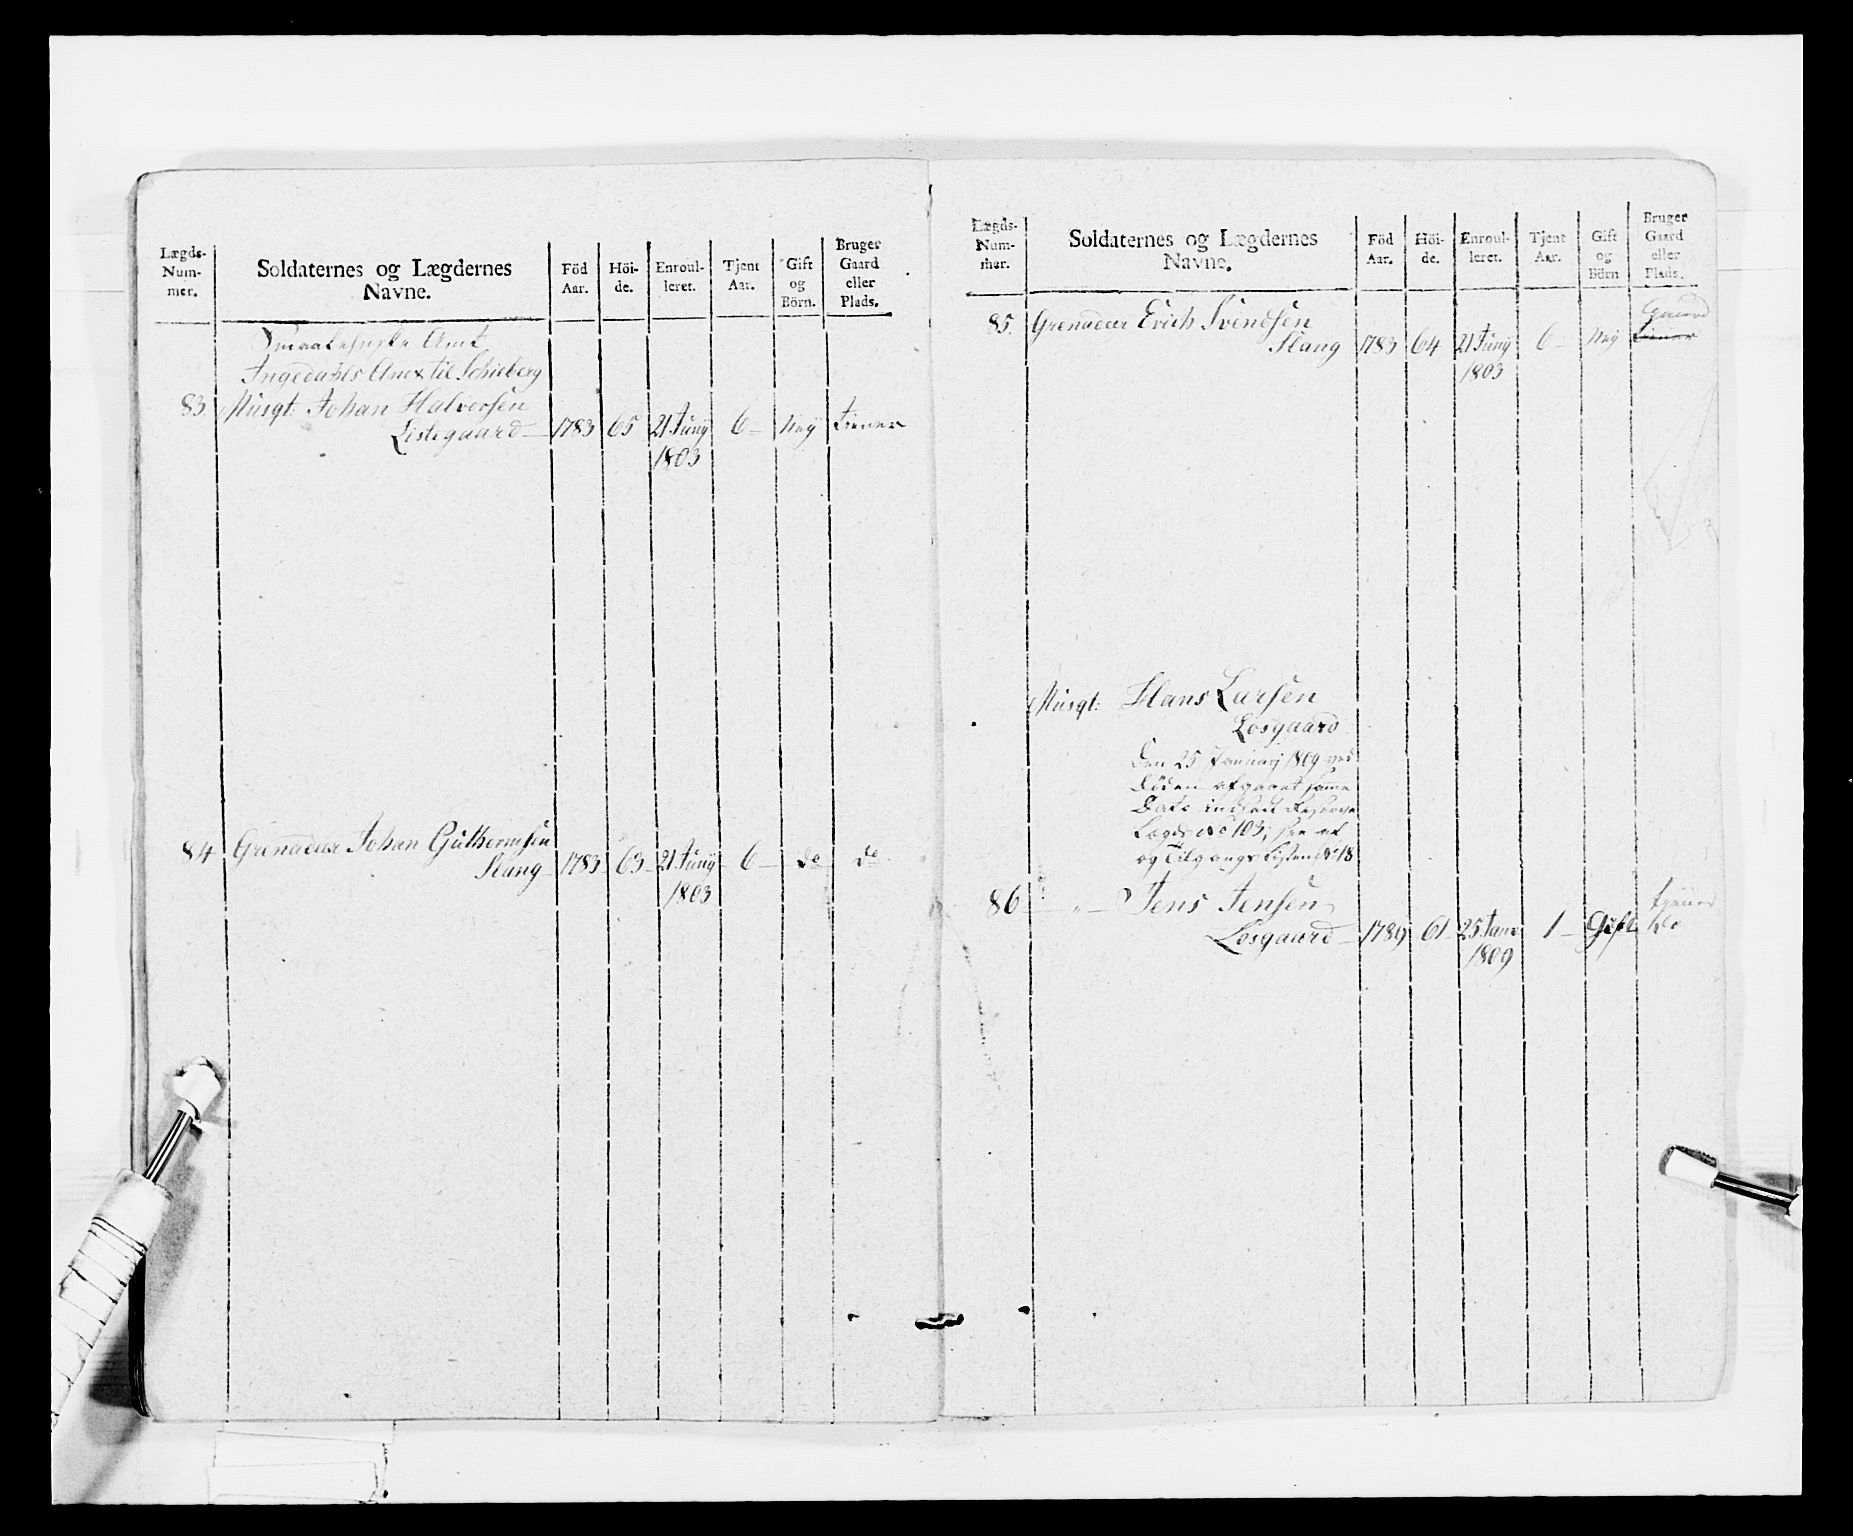 Lægds-
Num-
mer.
Soldaternes og Lægdernes
Navne.
Föd
Aar.
Höi-
de.
Enroul-
leret.
Tjent
Aar.
Gift
og
Börn.
Bruger
Gaard
eller
Plads.
Smaalehnske Amt
Ingedahls Anex til Schieberg
83 Musqt: Johan Halvorsen
Listegaard 1783 65 21 Junÿ 6 Neÿ tiener
1803
84 Grenadeer Johan Guthormsen
Slang 1783 63 21 Junÿ 6 do do
1803
Lægds-
Num-
mer.
Soldaternes og Lægdernes
Navne.
Föd
Aar.
Höi-
de.
Enroul-
leret.
Tjent
Aar.
Gift
og
Börn
Bruger
Gaard
eller
Plads.
85. Grenadeer Erich Svendsen Gaard
Slang 1783 64 21 Junÿ 6 Neÿ tiener
1803
Musqt: Hans Larsen
Losgaard
Den 25 Januarj 1809 ved
Døden afgaaet samme
Dato indsadt Reserve
Lægd No 103, see af
og Tilgangs Listen No 18
86 " Jens Jensen
Losgaard 1789 61 25 Janr 1 Gift
1809